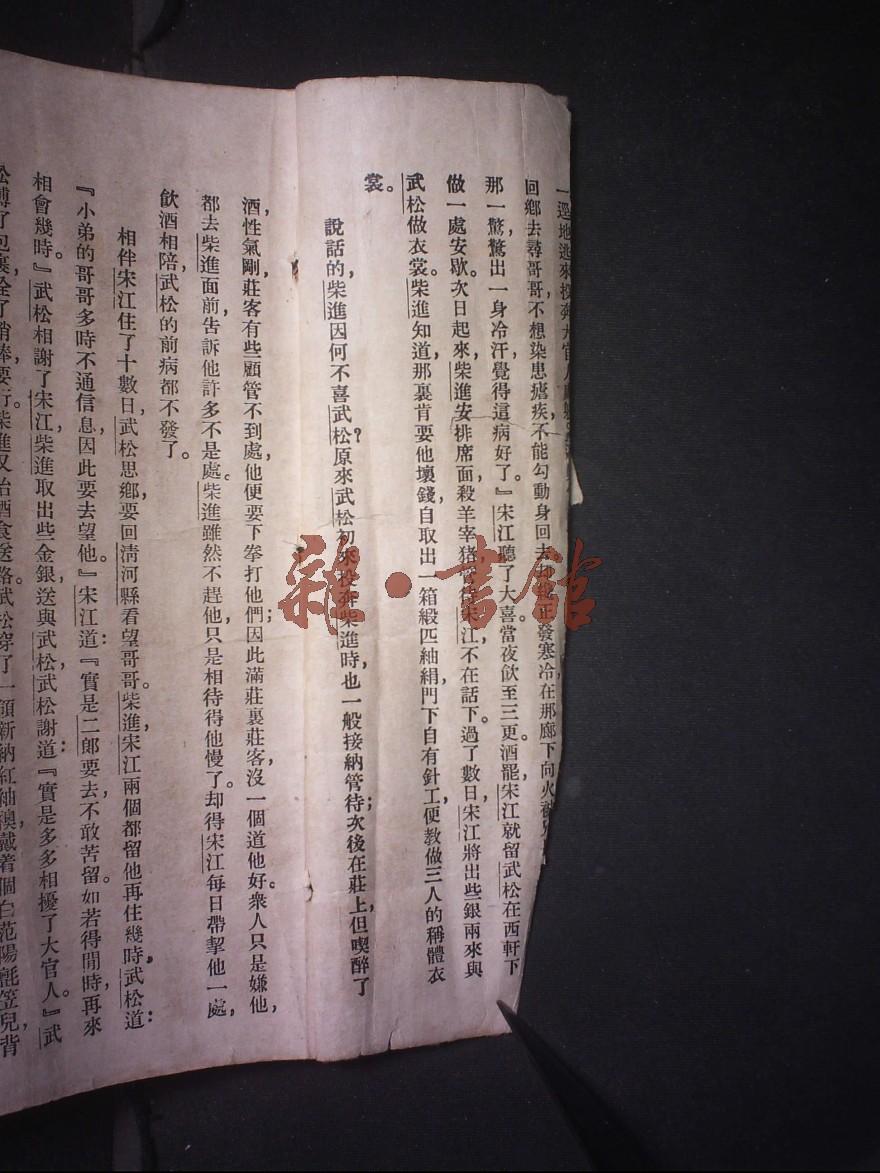 一逕地逃來投奔大官人
回鄉去尋哥哥，不想染患瘧疾，不能勾動身回去。却纔正發寒冷，在那廊下向火，
那一驚，驚出一身冷汗，覺得這病好了。』宋江聽了大喜。當夜飲至三更。酒罷，宋江就留武松在西軒下
做一處安歇。次日起來，柴進安排席面，殺羊宰猪，管待宋江，不在話下。過了數日，宋江將出些銀兩來與
武松做衣裳。柴進知道，那裏肯要他壞錢，自取出一箱緞匹紬絹，門下自有針工，便教做三人的稱體衣
裳。
說話的，柴進因何不喜武松？原來武松初來投奔柴進時，也一般接納管待；次後在莊上，但喫醉了
酒，性氣剛，莊客有些顧管不到處，他便要下拳打他們；因此滿莊裏莊客，沒一個道他好。衆人只是嫌他，
都去柴進面前，吿訴他許多不是處。柴進雖然不趕他，只是相待得他慢了。却得宋江每日帶挈他一處，
飲酒相陪，武松的前病都不發了。
相伴宋江住了十數日，武松思鄉，要回淸河縣看望哥哥。柴進、宋江兩個都留他再住幾時，武松道：
『小弟的哥哥多時不通信息，因此要去望他。』宋江道：『實是二郎要去，不敢苦留。如若得閒時，再來
相會幾時。』武松相謝了宋江，柴進取出些金銀，送與武松，武松謝道：『實是多多相擾了大官人。』武
松縛了包裹，拴了稍棒，要行，柴進又治酒食送路。武松穿了一領新納紅紬襖，戴着個白范陽氈笠兒，背
雜·書館